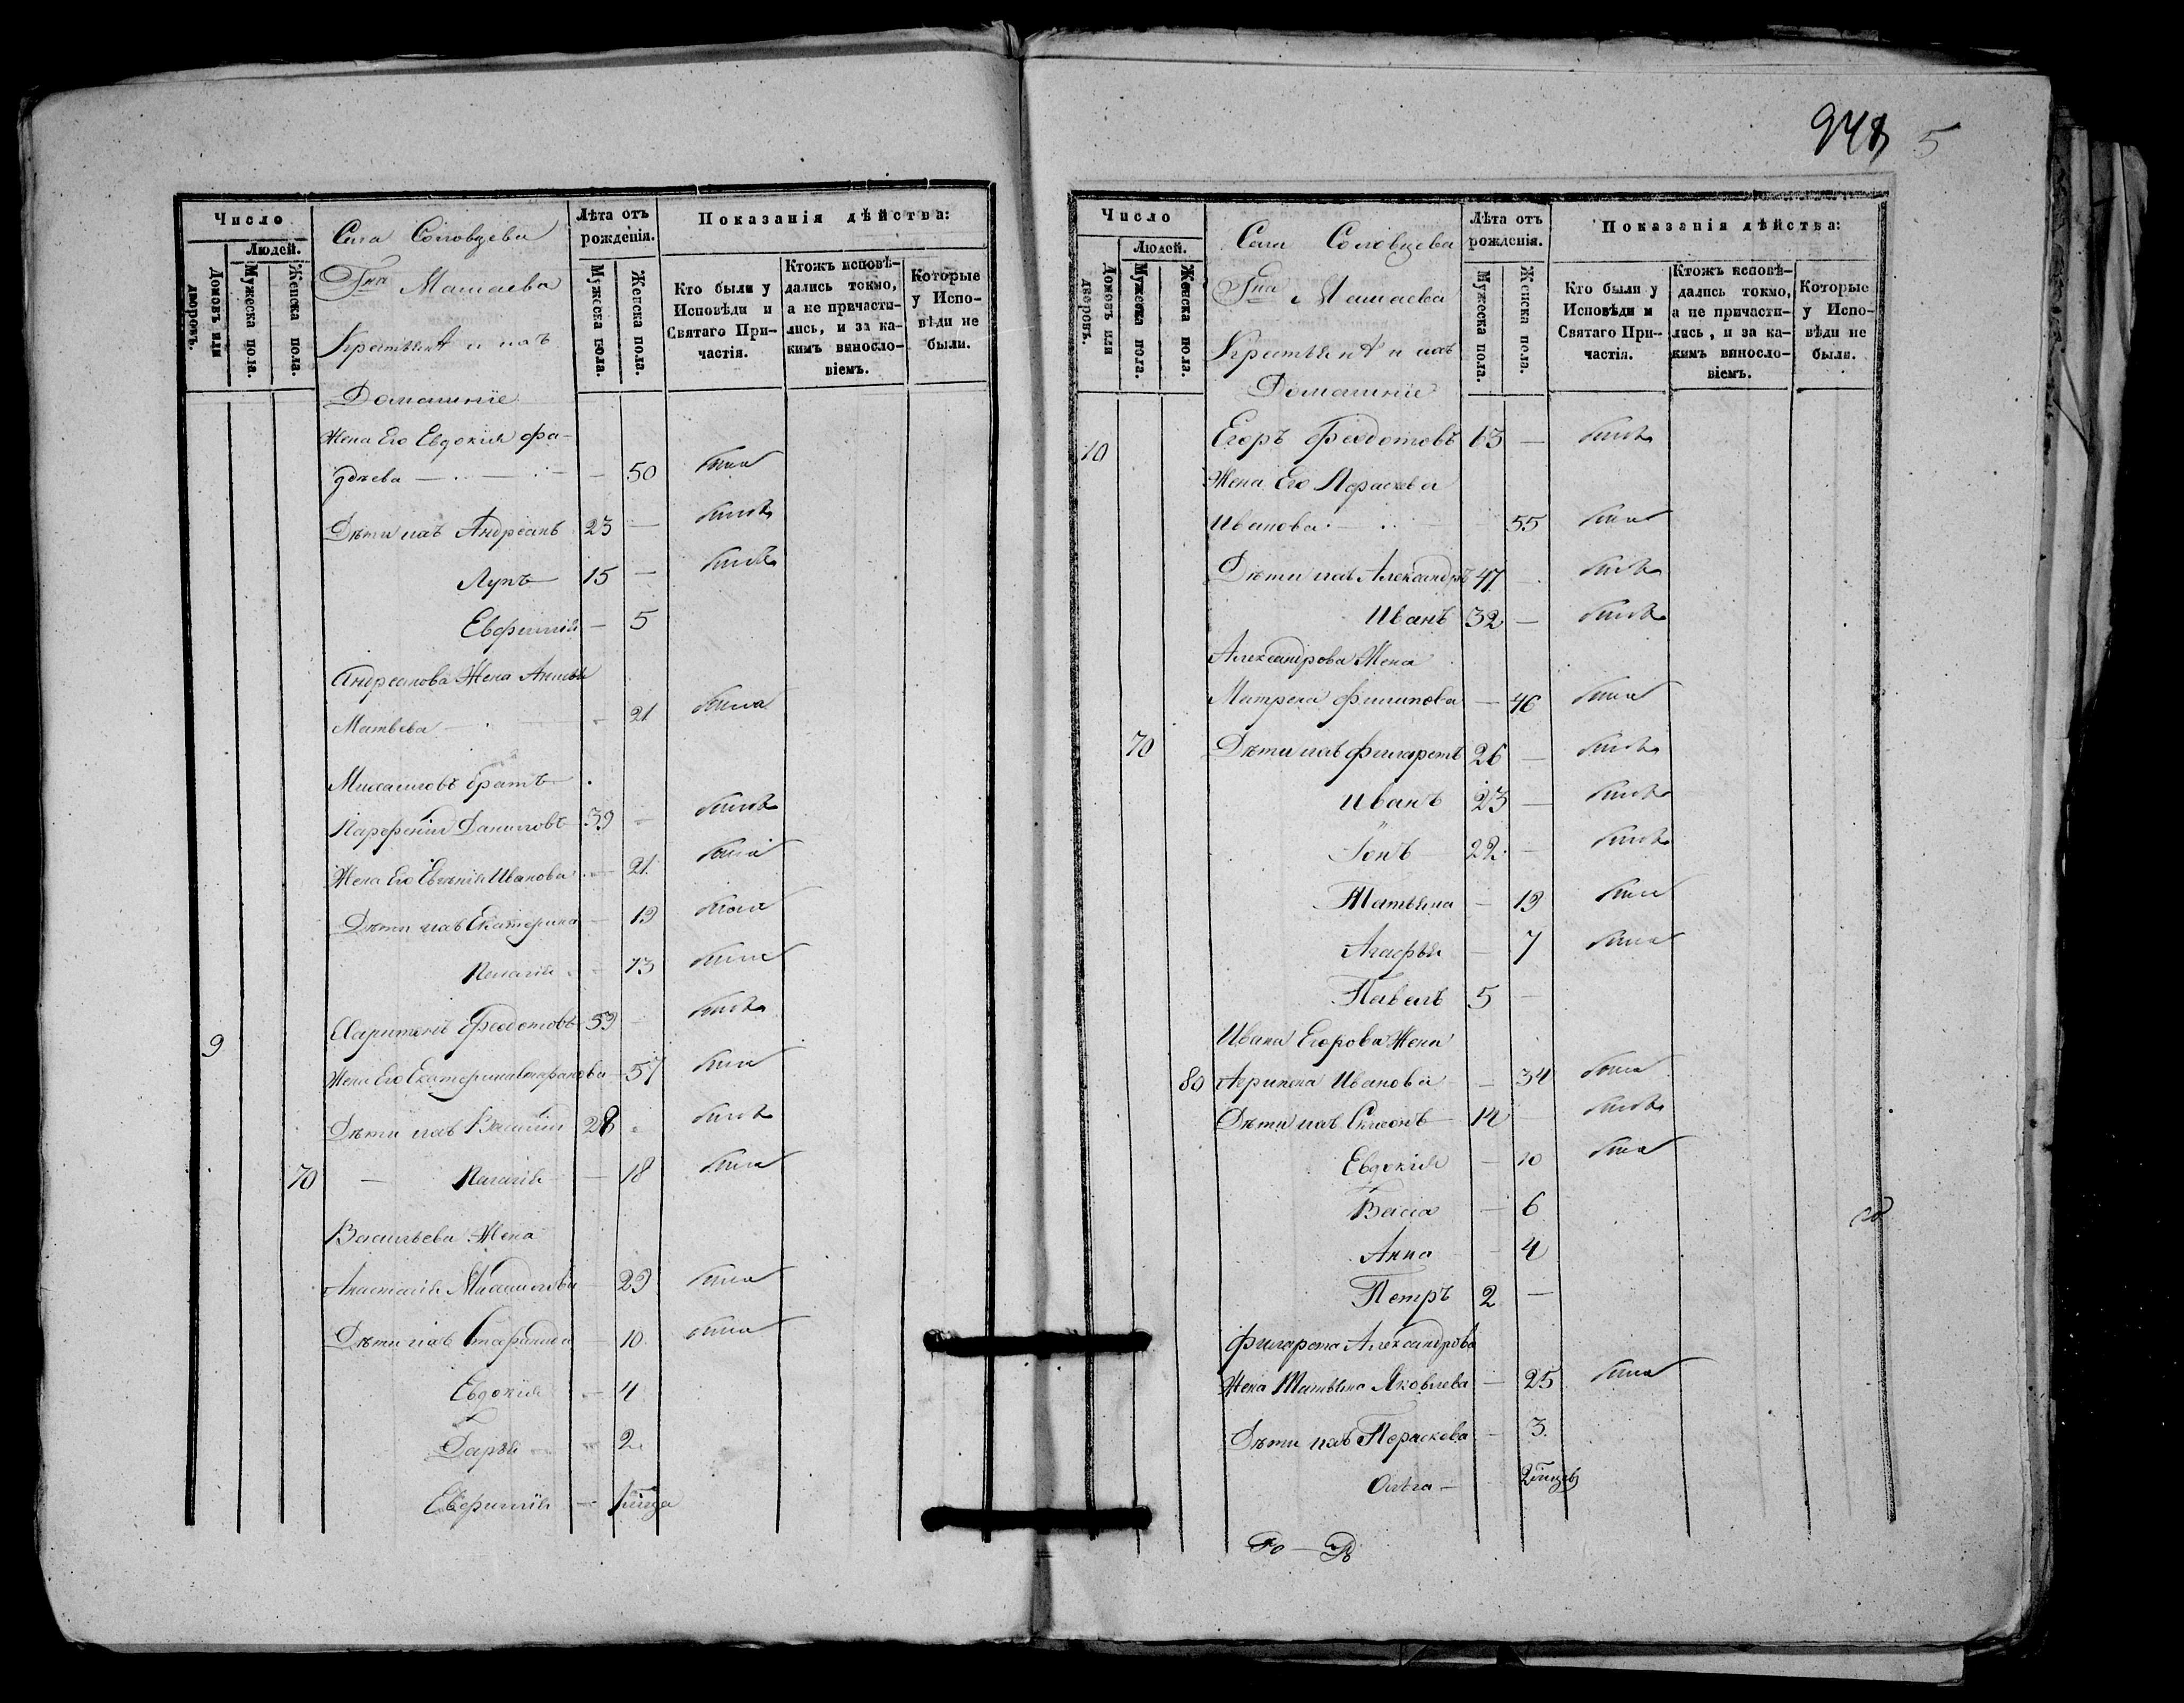 948 5
Число
Людей.
Домовъ или дворовъ.
Мужеска пола.
Женска пола.
Села Соловцева
Гна Машаева
Крестьянѣ и ихъ
Домашніе
Лѣта отъ рожденія.
Мужеска пола.
Женска пола.
Показанія дѣйства:
Кто были у Исповѣди и Святаго При-
частія.
Ктожъ исповѣ-
дались токмо,
а не причасти-
лись, и за ка-
кимъ винosло-
віемъ.
Которые
у Испо-
вѣди не
были.
Жена Его Евдокия Фа-
дѣева — — 50 была
Дѣти ихъ Андреанъ 23 — былъ
Лупъ 15 — былъ
Евфимія — 5
Андреанова Жена
Матвѣева — 21 была
Михаиловъ братъ
Парфеній Даниловъ 39 — былъ
Жена Его Евгенія Иванова — 21 была
Дѣти ихъ Екатерина — 19 была
Пелагія — 13 была
9 Харитонъ Феодотовъ 59 — былъ
Жена Его Екатерина — 57 была
Дѣти ихъ Василій 28 былъ
70 — Пелагія — 18 была
Васильева Жена
Анастасія Михаилова — 29 была
Дѣти ихъ — 10 была
Евдокия — 4
Дарья — 2
Евфимія — 1 года
Число
Людей.
Домовъ или дворовъ.
Мужеска пола.
Женска пола.
Села Соловцева
Гна Машаева
Крестьянѣ и ихъ
Домашніе
Лѣта отъ рожденія.
Мужеска пола.
Женска пола.
Показанія дѣйства:
Кто были у
Исповѣди и
Святаго При-
частія.
Ктожъ исповѣ-
дались токмо,
а не причасти-
лись, и за ка-
кимъ винosло-
віемъ.
Которые
у Испо-
вѣди не
были.
10 Егоръ Феодотовъ 63 — былъ
Жена Его Параскева
Иванова — 55 была
Дѣти ихъ Александръ 47 — былъ
Иванъ 32 — былъ
Александрова Жена
Матрена Филипова — 46 была
70 Дѣти ихъ Филаретъ 26 — былъ
Иванъ 23 — былъ
Іонъ 22 — былъ
Татьяна — 19 была
Агафья — 7 была
Павелъ 5 —
Ивана Егорова Жена
80 Агрипена Иванова — 34 была
Дѣти ихъ Симеонъ 14 — былъ
Евдокия — 10 была
Васса — 6
Анна — 4
Петръ 2 —
Филарета Александрова
Жена Татьяна Яковлева — 25 была
Дѣти ихъ Параскева — 3
Ольга — 2